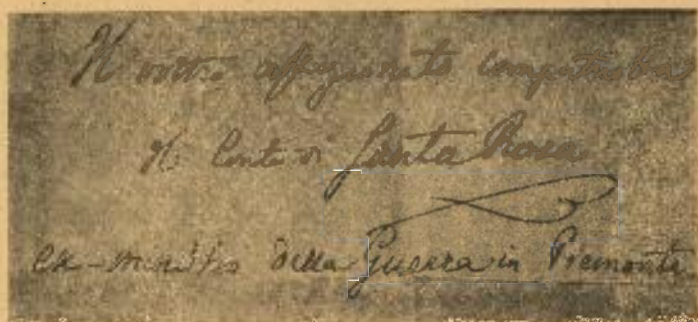 Il vostro affezionato compatriotta
Il Conte di Santa Rosa
ex-ministro della Guerra in Piemonte